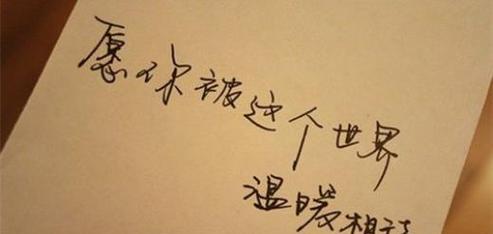 愿你被这个世界
温暖相待